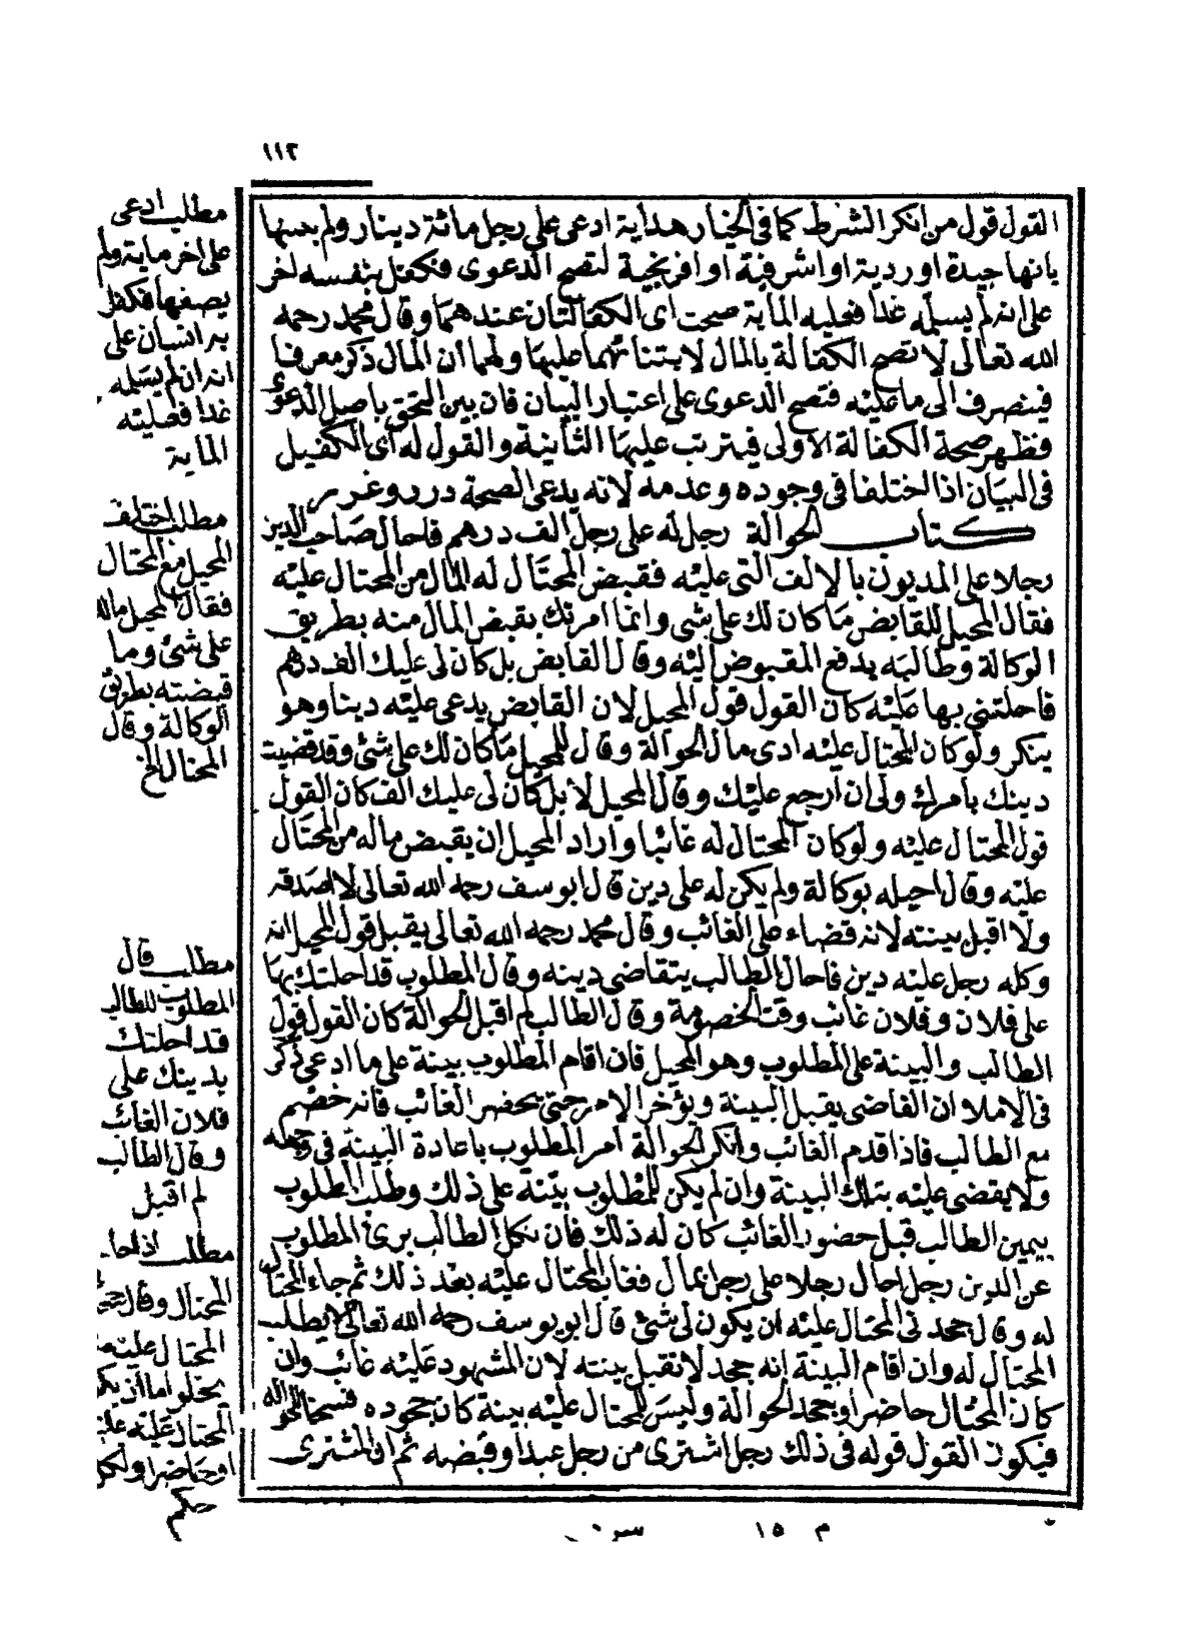 ١١٣
القول قول من انكر الشرط كما فى الخيار هداية ادعى على رجل مائة دينار ولم يبينها
بانها جيدة او ردية او اشرفية او افرنجية لتصح الدعوى فكفل بنفسه اخر
على انه لم يسلمه غدا فعليه المأية صحت اى الكفالتان عندهما وقال محمد رحمه
الله تعالى لا تصح الكفالة بالمال لابتنائهما عليها ولهما ان المال ذكر معرفا
فينصرف الى ما عليه فتصح الدعوى على اعتبار البيان فان بين التحق باصل الدعوى
فظهر صحة الكفالة الاولى فيترتب عليها الثانية والقول له اى الكفيل
فى البيان اذا اختلفا فى وجوده وعدمه لانه يدعى الصحة درر وغرر
كتاب الحوالة رجل له على رجل الف درهم فاحال صاحب الدين
رجلا على المديون بالالف التى عليه فقبض المحتال له المال من المحتال عليه
فقال المحيل للقابض ما كان لك على شئ وانما امرتك بقبض المال منه بطريق
الوكالة وطالبه بدفع المقبوض اليه وقال القابض بل كان لى عليك الف درهم
فاحلتنى بها عليه كان القول قول المحيل لان القابض يدعى عليه دينا وهو
ينكر ولو كان المحتال عليه ادى مال الحوالة وقال للمحيل ما كان لك على شئ وقد قضيت
دينك بامرك ولى ان ارجع عليك وقال المحيل لا بل كان لى عليك الف كان القول
قول المحتال عليه ولو كان المحتال له غائبا واراد المحيل ان يقبض ماله من المحتال
عليه وقال احيله بوكالة ولم يكن له على دين قال ابو يوسف رحمه الله تعالى لا اصدقه
ولا اقبل بينته لانه قضاء على الغائب وقال محمد رحمه الله تعالى يقبل قول المحيل انه
وكله رجل عليه دين فاحال الطالب يتقاضى دينه وقال المطلوب قد احلتك بها
على فلان وفلان غائب وقت الخصومة وقال الطالب لم اقبل الحوالة كان القول قول
الطالب والبينة على المطلوب وهو المحيل فان اقام المطلوب بينة على ما ادعى ذكر
فى الاملا ان القاضى يقبل البينة ويؤخر الامر حتى يحضر الغائب فانه خصم
مع الطالب فاذا قدم الغائب وانكر الحوالة امر المطلوب باعادة البينة فى وجهه
ولا يقضى عليه بتلك البينة وان لم يكن للمطلوب بينة على ذلك وطلب المطلوب
يمين الطالب قبل حضور الغائب كان له ذلك فان نكل الطالب برئ المطلوب
عن الدين رجل احال رجلا على رجل بمال فغاب المحتال عليه بعد ذلك ثم جاء المحتال
له وقال جحدنى المحتال عليه ان يكون لى شئ قال ابو يوسف رحمه الله تعالى لا يطلب
المحتال له وان اقام البينة انه جحد لا تقبل بينته لان المشهود عليه غائب وان
كان المحتال حاضرا وجحد الحوالة وليس للمحتال عليه بينة كان جحوده فسخا للحوالة
فيكون القول قوله فى ذلك رجل اشترى من رجل عبدا وقبضه ثم ان المشترى
م ١٥
مطلب ادعى
على اخر ماية ولم
يصفها فكفل
به انسان على
انه ان لم يسلمه
غدا فعليه
الماية
مطلب اختلف
المحيل مع المحتال
فقال المحيل مالك
على شئ وما
قبضته بطريق
الوكالة وقال
المحتال الخ
مطلب قال
المطلوب للطالب
قد احلتك
بدينك على
فلان الغائب
وقال الطالب
لم اقبل
مطلب اذا احا
المحتال وقال جحد
المحتال عليه
يخلو اما ان يكو
المحتال عليه
او حاضرا ولكل
حكم